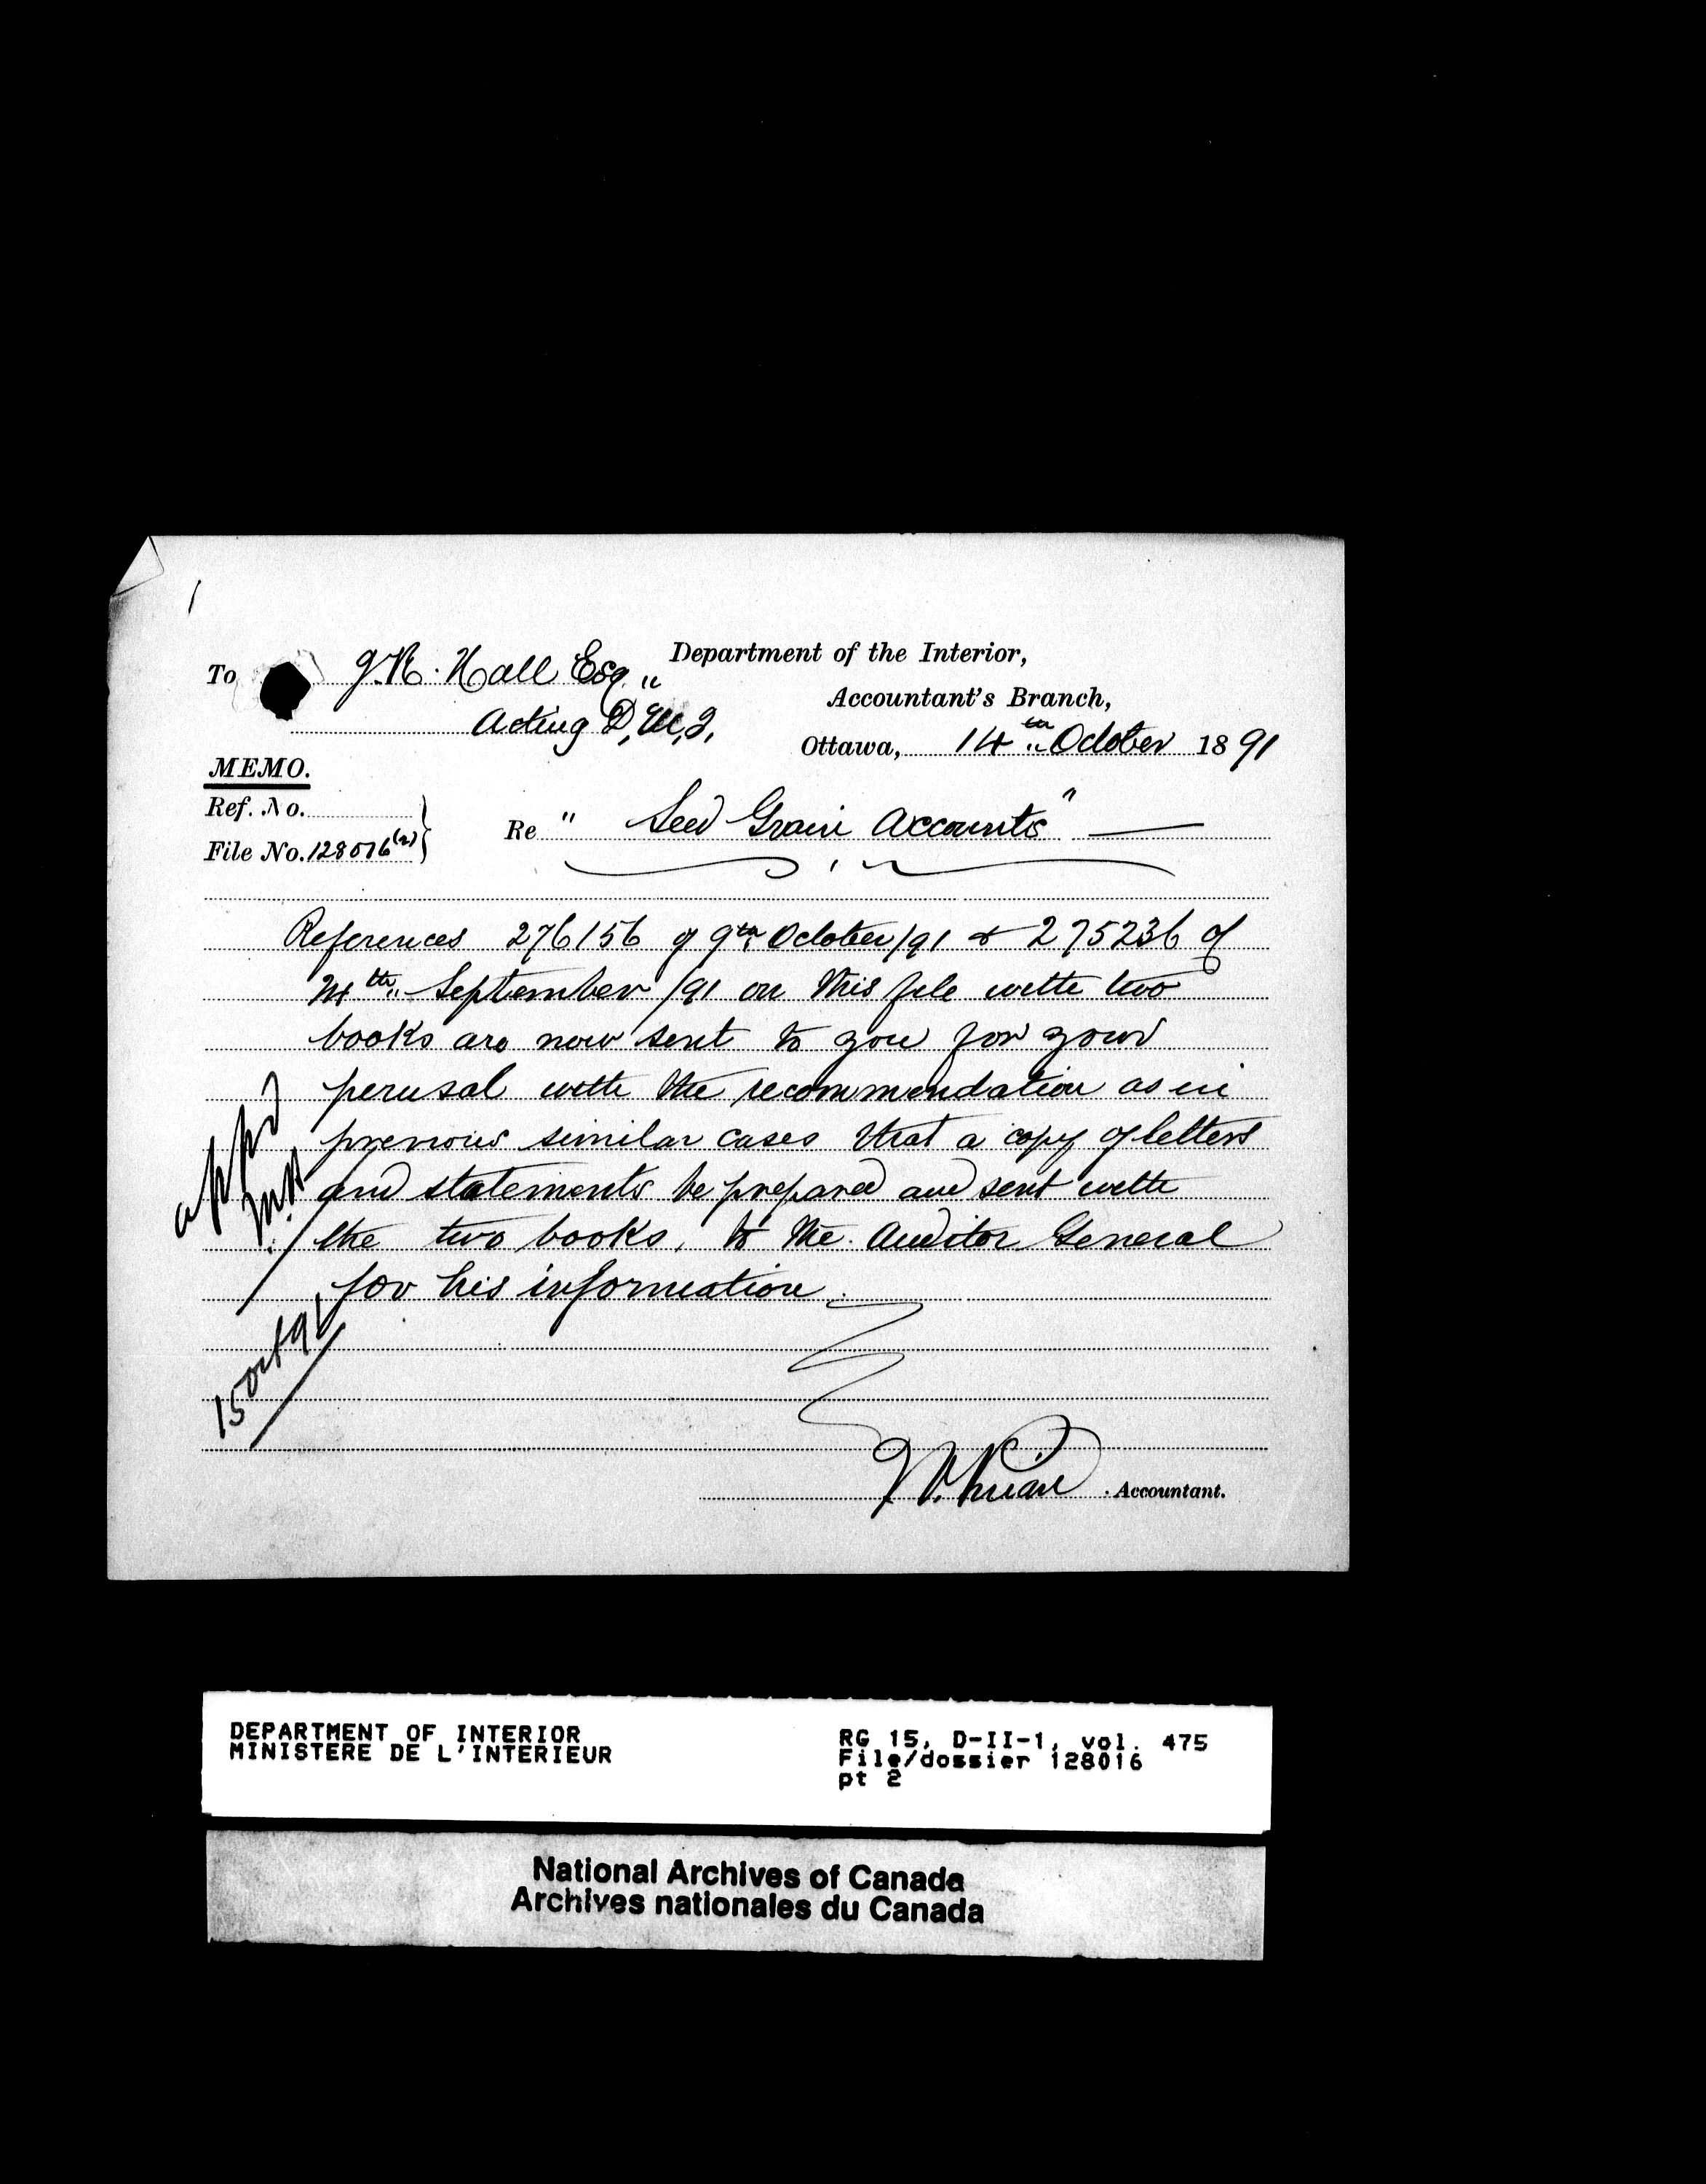 To J.R. Hall Esq.
Acting D.M.I.
Department of the Interior,
Accountant's Branch,
Ottawa, 14th October 1891
MEMO.
Ref. No.
File No. 128016(2)
Re " Seed Grain Accounts "
References 276156 of 9th October/91 & 275236 of
September /91 on this file with two
books are now sent to you for your
perusal with the recommendation as in
previous similar cases that a copy of letters
and statements be prepared and sent with
the two books, to the Auditor General
for his information.
appd
15 Oct 91
Accountant.
DEPARTMENT OF INTERIOR
MINISTERE DE L'INTERIEUR
RG 15, D-II-1, vol. 475
File/dossier 128016
pt 2
National Archives of Canada
Archives nationales du Canada